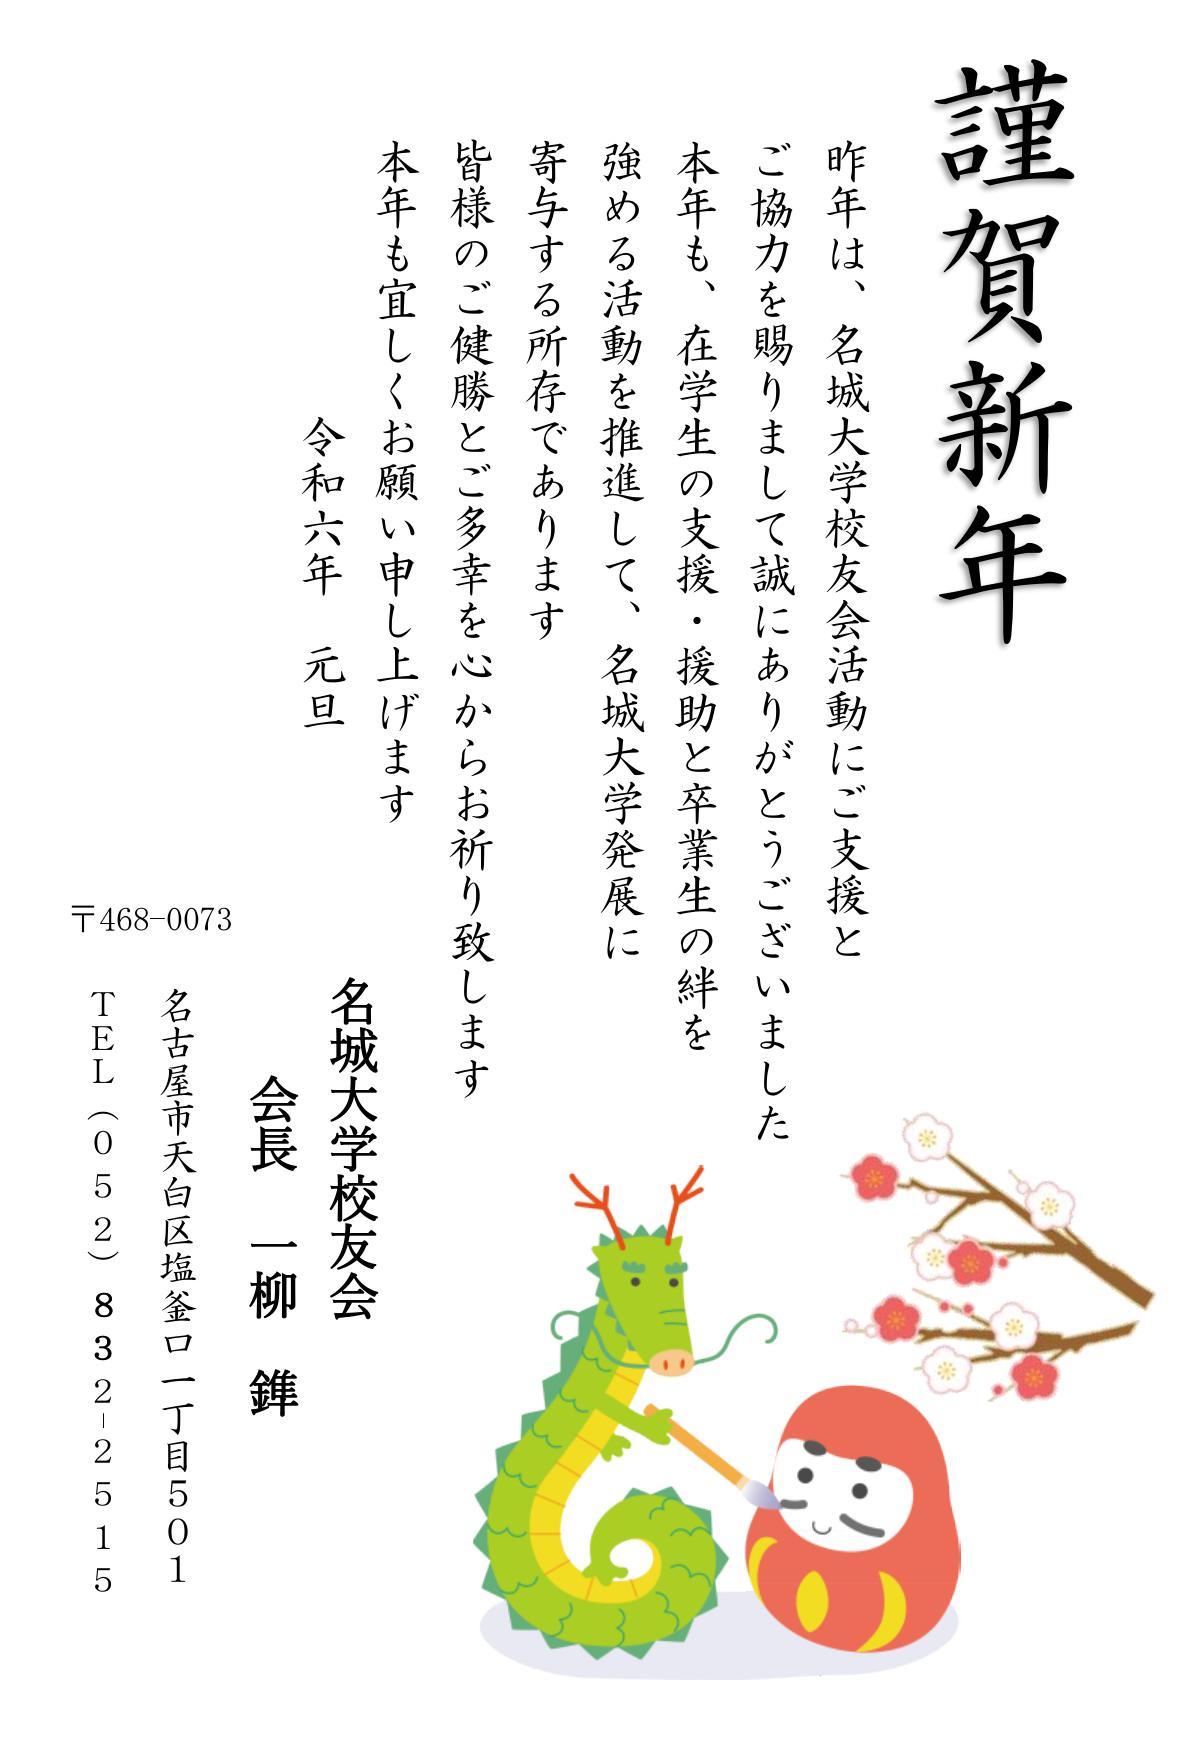 謹賀新年
昨年は、名城大学校友会活動にご支援と
ご協力を賜りまして誠にありがとうございました
本年も、在学生の支援・援助と卒業生の絆を
強める活動を推進して、名城大学発展に
寄与する所存であります
皆様のご健勝とご多幸を心からお祈り致します
本年も宜しくお願い申し上げます
令和六年　元旦
名城大学校友会
会長　一柳　鎨
〒468-0073
名古屋市天白区塩釜口一丁目５０１
ＴＥＬ（０５２）８３２-２５１５